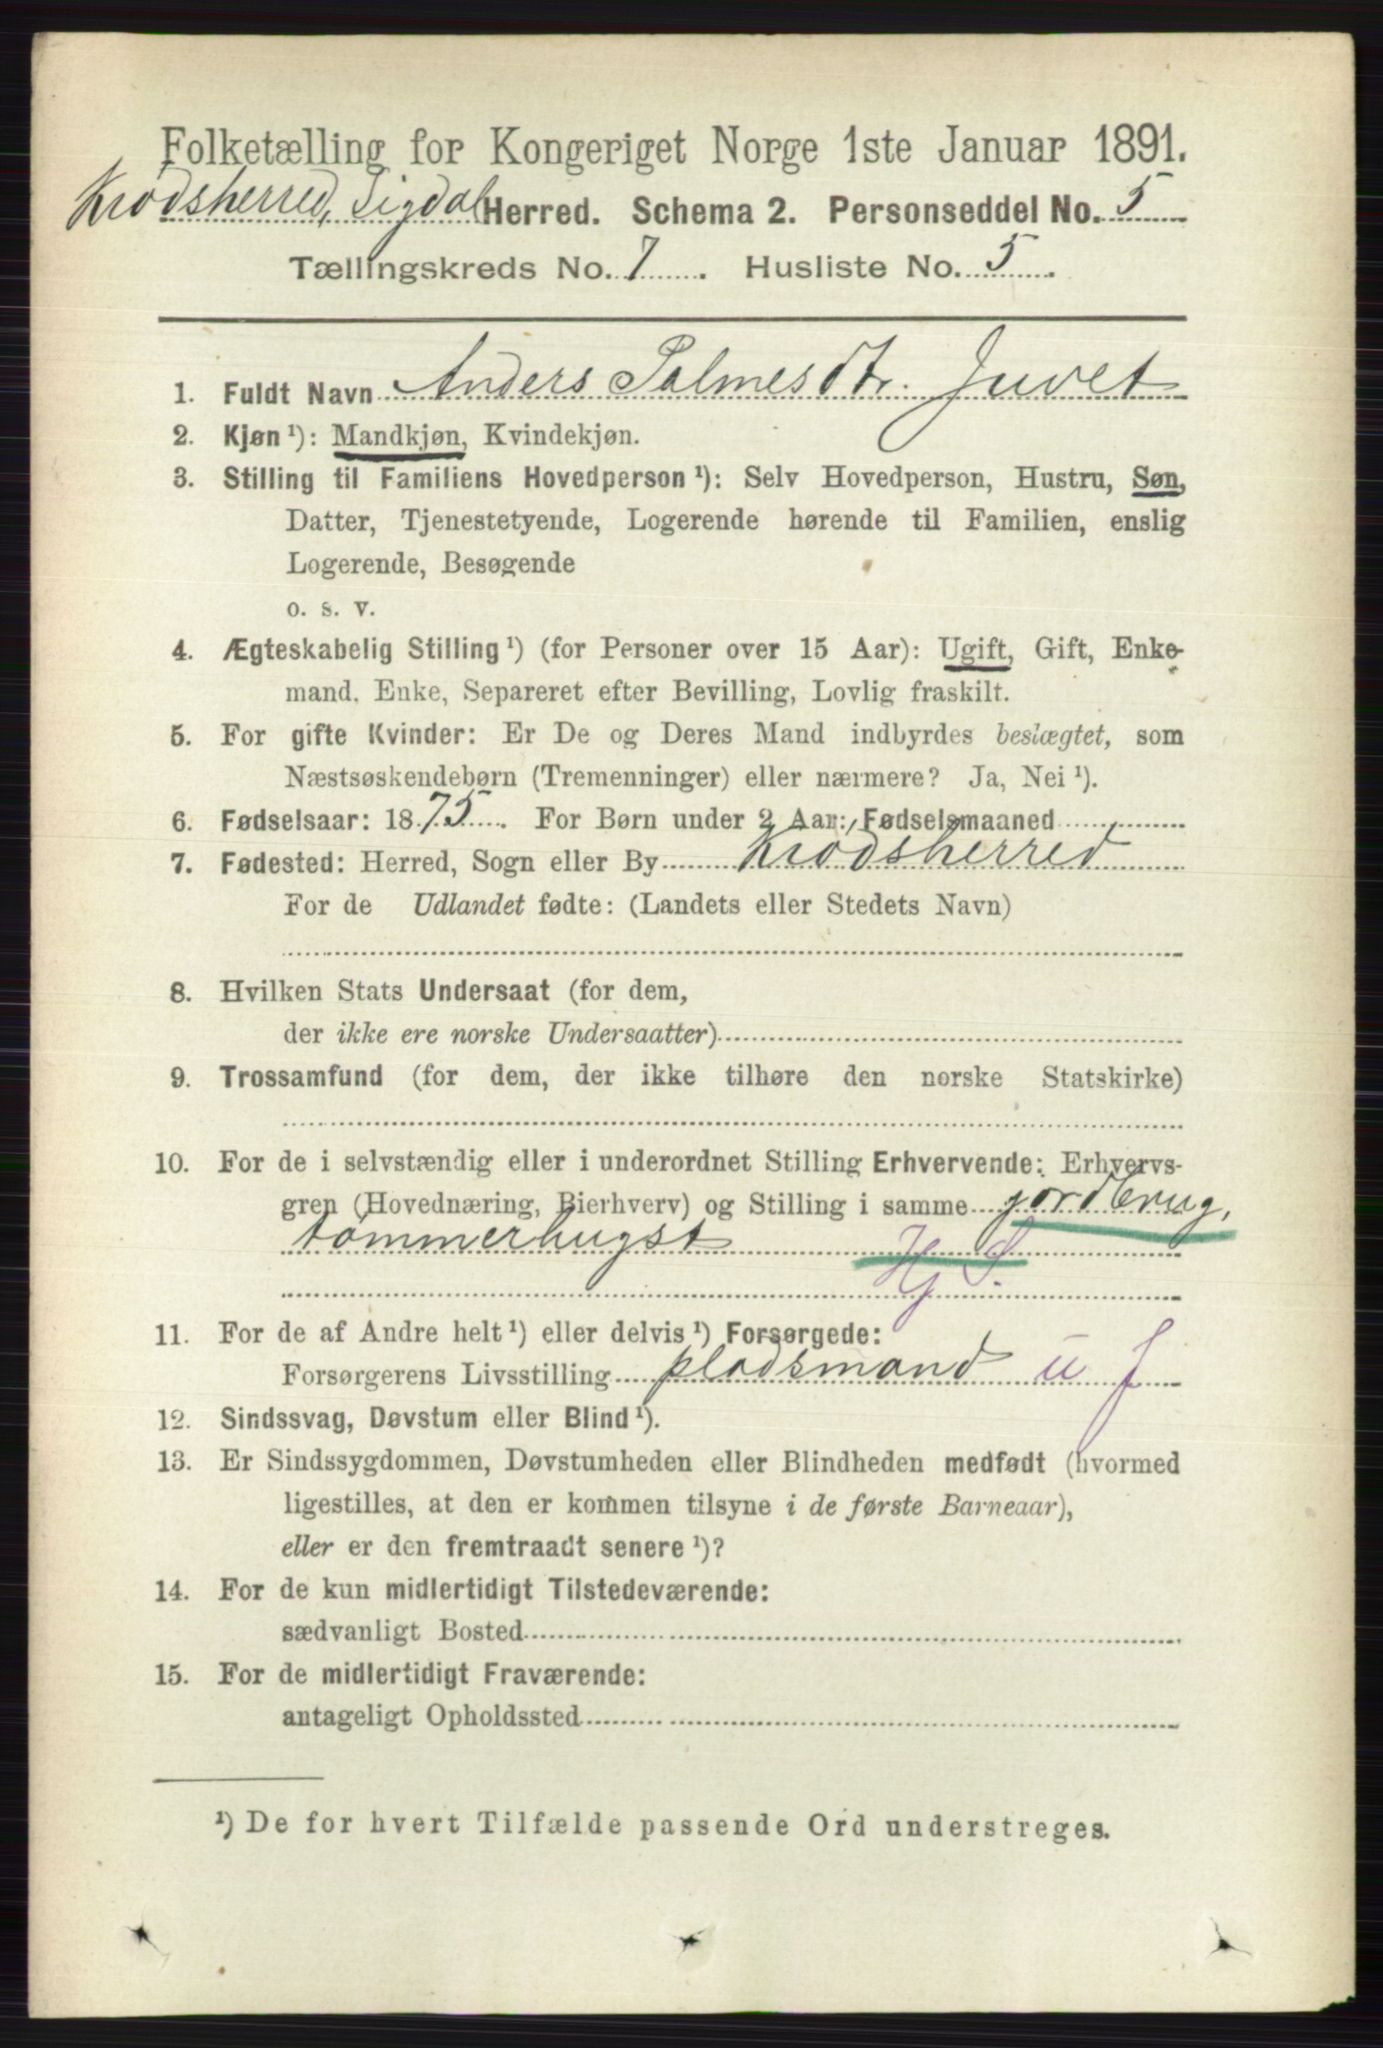 Folketælling for Kongeriget Norge 1ste Januar 1891.
Krødsherred, Sigdal Herred. Schema 2. Personseddel No. 5
Tællingskreds No. 7. Husliste No. 5.
1. Fuldt Navn Anders Palmesdtr. Juvet
2. Kjøn ¹): Mandkjøn, Kvindekjøn.
3. Stilling til Familiens Hovedperson ¹): Selv Hovedperson, Hustru, Søn,
Datter, Tjenestetyende, Logerende hørende til Familien, enslig
Logerende, Besøgende
o. s. v.
4. Ægteskabelig Stilling ¹) (for Personer over 15 Aar): Ugift, Gift, Enke-
mand, Enke, Separeret efter Bevilling, Lovlig fraskilt.
5. For gifte Kvinder: Er De og Deres Mand indbyrdes beslægtet, som
Næstsøskendebørn (Tremenninger) eller nærmere? Ja, Nei ¹).
6. Fødselsaar: 1875. For Børn under 2 Aar: Fødselsmaaned
7. Fødested: Herred, Sogn eller By Krødsherred
For de Udlandet fødte: (Landets eller Stedets Navn)
8. Hvilken Stats Undersaat (for dem,
der ikke ere norske Undersaatter)
9. Trossamfund (for dem, der ikke tilhøre den norske Statskirke)
10. For de i selvstændig eller i underordnet Stilling Erhvervende: Erhvervs-
gren (Hovednæring, Bierhverv) og Stilling i samme jordbrug,
tømmerhugst Hj S.
11. For de af Andre helt ¹) eller delvis ¹) Forsørgede:
Forsørgerens Livsstilling pladsmand u J
12. Sindssvag, Døvstum eller Blind ¹).
13. Er Sindssygdommen, Døvstumheden eller Blindheden medfødt (hvormed
ligestilles, at den er kommen tilsyne i de første Barneaar),
eller er den fremtraadt senere ¹)?
14. For de kun midlertidigt Tilstedeværende:
sædvanligt Bosted
15. For de midlertidigt Fraværende:
antageligt Opholdssted
¹) De for hvert Tilfælde passende Ord understreges.